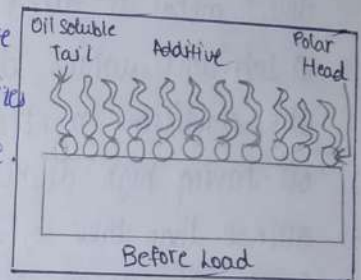 Oil soluble
Tail
Additive
Polar
Head
Before Load